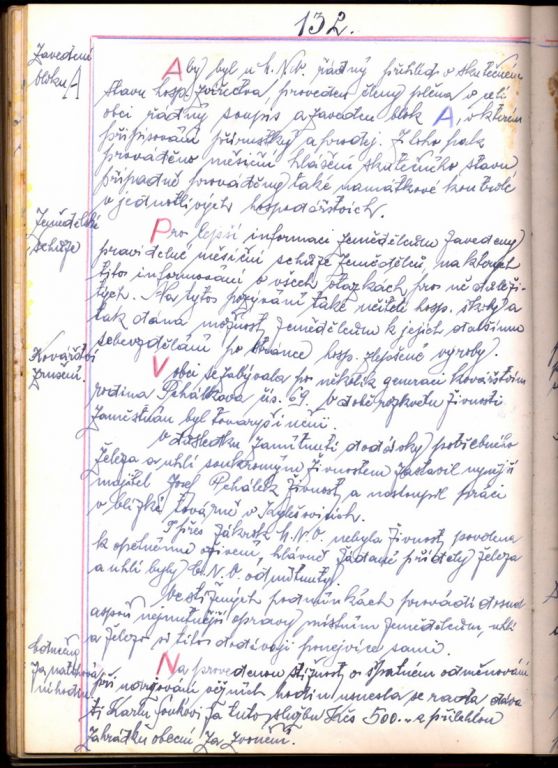 132.
Zavedení
bloku A
Aby byl u M.N.V. řádný přehled o skutečném
stavu hosp. zvířectva proveden členy pléna v celé
obci řádný soupis a zaveden blok A, v kterém
připisování přírůstky a prodej. Z toho pak
prováděno měsíční hlášení skutečného stavu
případně prováděny také namátkové kontroly
v jednotlivých hospodářstvích.
Zemědělské
schůze
Pro lepší informaci zemědělcům zavedeny
pravidelné měsíční schůze zemědělců, na kterých
tito informováni o všech otázkách pro ně důleži-
tých. Na tyto pozýváni také učitelé hosp. školy a
tak dána možnost zemědělcům k jejich dalšímu
sebevzdělání po stránce hosp. zlepšené výroby.
Kovářství
zrušení.
V obci se zabývala po několik generací kovářstvím
rodina Pchálkova čís. 69. V době rozkvětu živnosti
zaměstnán byl tovaryš i učni.
V důsledku zamítnutí dodávky potřebného
železa a uhlí soukromým živnostem zastavil nynější
majitel Josef Pchálek živnost a nastoupil práci
v blízké továrně v Kylešovicích.
I přes zákrok M.N.V. nebyla živnost povolena
k opětnému oživení, hlavně žádané příděly železa
a uhlí byly O.N.V. odmítnuty.
Ve stížených podmínkách provádí dosud
aspoň nejnutnější opravy místním zemědělcům, uhlí
a železo si tito dodávají ponejvíce sami.
Odměna
za natahová-
ní hodin
Na provedenou stížnost o špatném odměňování
při udržování věžních hodin usnesla se rada dáva-
ti Karlu za tuto službu Kčs 500.- a přilehlou
zahrádku obecní za zvonění.